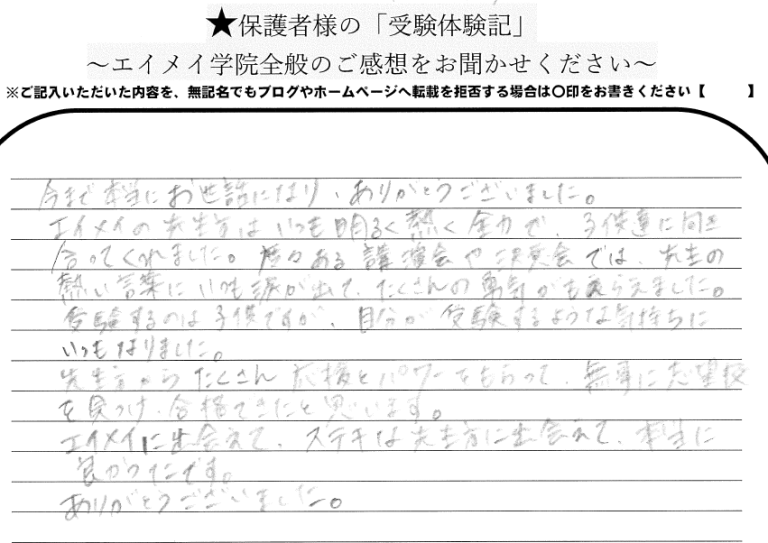 ★保護者様の「受験体験記」
～エイメイ学院全般のご感想をお聞かせください～
※ご記入いただいた内容を、無記名でもブログやホームページへ転載を拒否する場合は〇印をお書きください【　　　】
今まで本当にお世話になり、ありがとうございました。
エイメイの先生方はいつも明るく熱く全力で、子供達に向き
合ってくれました。度々ある講演会や決起会では、先生の
熱い言葉にいつも涙が出て、たくさんの勇気がもらえました。
受験するのは子供ですが、自分が受験するような気持ちに
いつもなりました。
先生方からたくさん応援とパワーをもらって、無事に志望校
を見つけ、合格できたと思います。
エイメイに出会えて、ステキな先生方に出会えて、本当に
良かったです。
ありがとうございました。